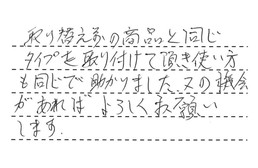 取り替え前の商品と同じ
タイプを取り付けて頂き使い方
も同じで助かりました。又の機会
があれば よろしくお願い
します。